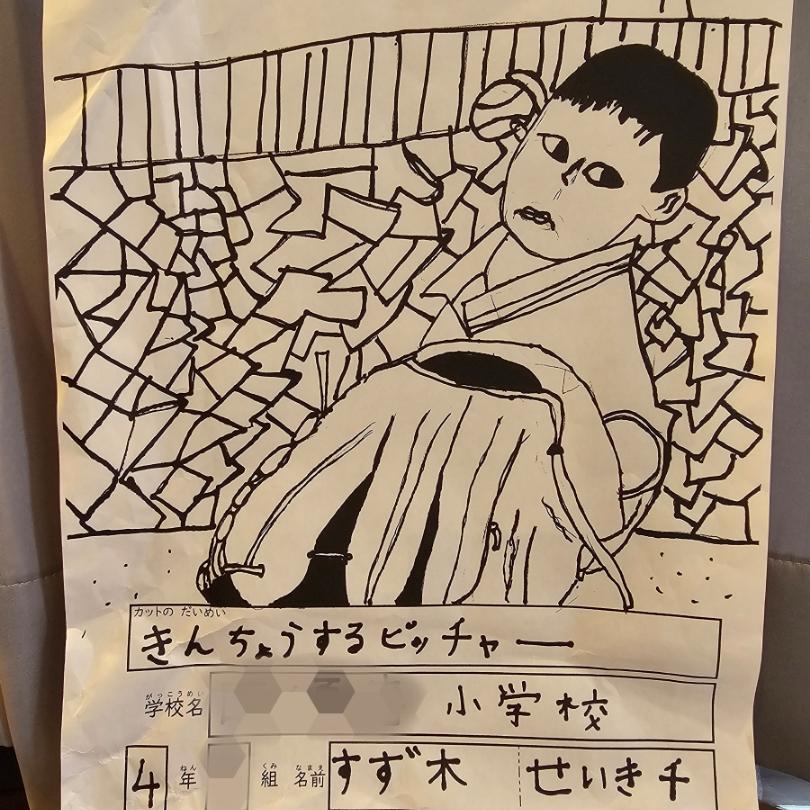 カットの だいめい
きんちょうするピッチャー
がっこうめい
学校名 小学校
ねん くみ なまえ
4年 組 名前 すず木 せいき千